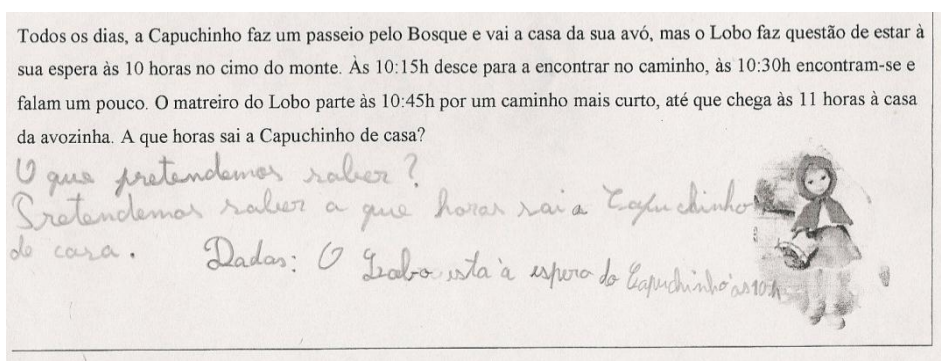 Todos os dias, a Capuchinho faz um passeio pelo Bosque e vai a casa da sua avó, mas o Lobo faz questão de estar à
sua espera às 10 horas no cimo do monte. Às 10:15h desce para a encontrar no caminho, às 10:30h encontram-se e
falam um pouco. O matreiro do Lobo parte às 10:45h por um caminho mais curto, até que chega às 11 horas à casa
da avozinha. A que horas sai a Capuchinho de casa?
O que pretendemos saber?
Pretendemos saber a que horas sai a Capuchinho
de casa. Dados: O Lobo esta à espera do Capuchinho às 10 h